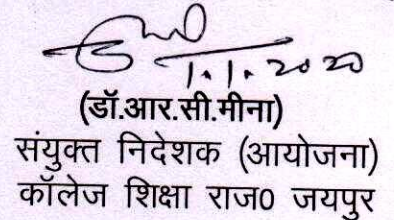 1.1.2020
(डॉ.आर.सी.मीना)
संयुक्त निदेशक (आयोजना)
कॉलेज शिक्षा राज0 जयपुर